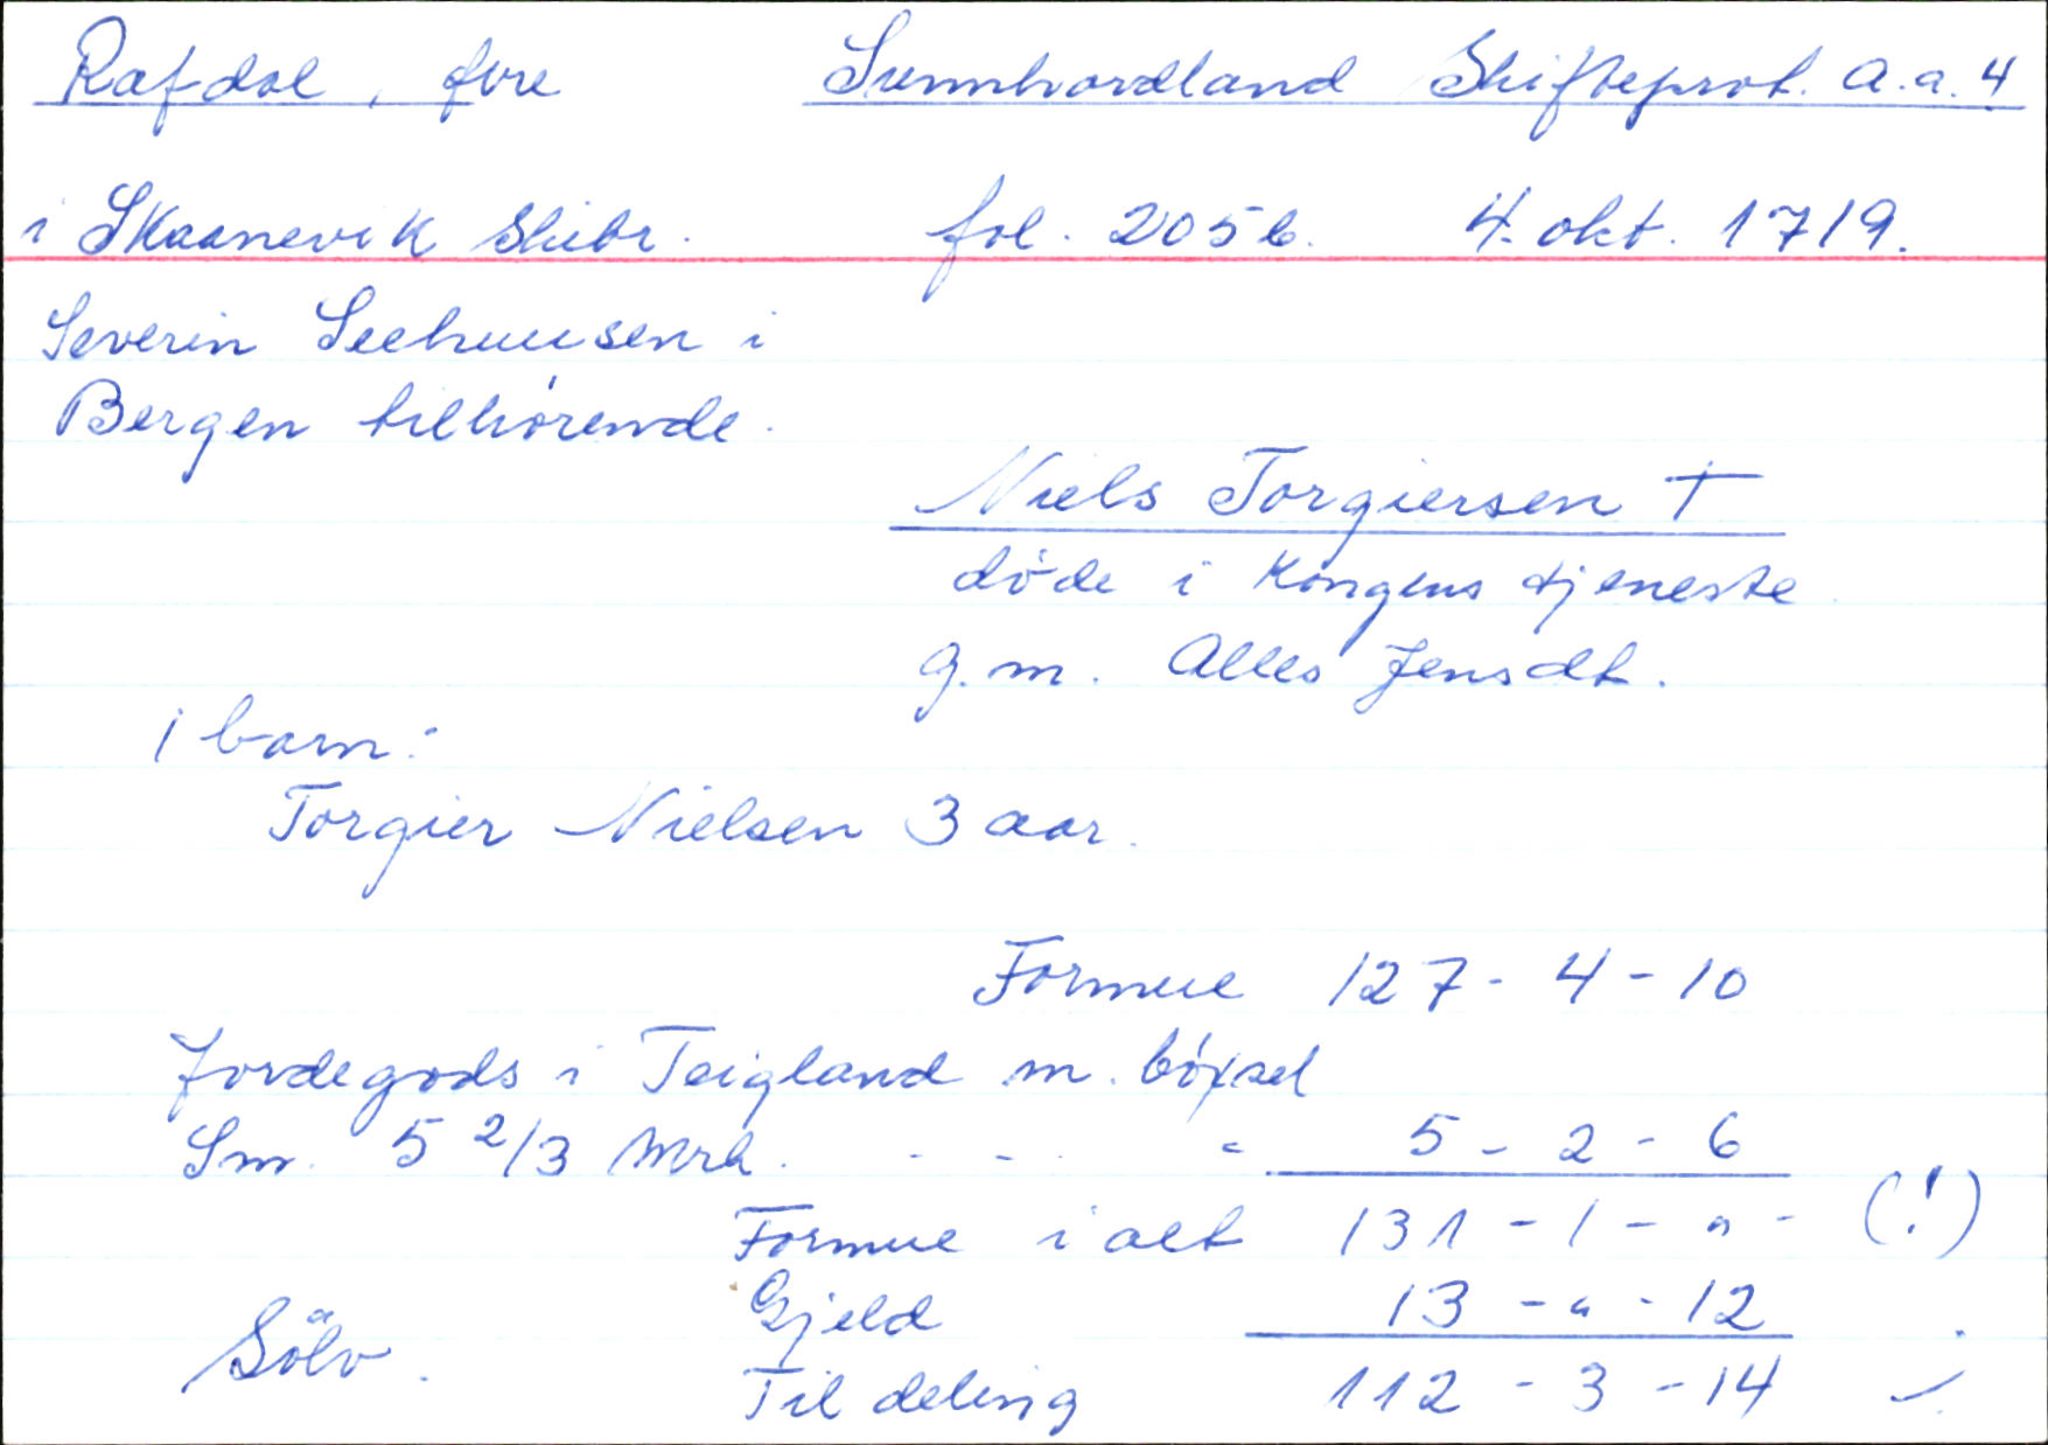 Rafdal, fvre Sunnhordland Skifteprot. A.a. 4
i Skaanevik Skibr. fol. 205 b. 4. okt. 1719.
Severin Seehuusen i
Bergen tilhörende.
Niels Torgiersen †
döde i Kongens tjeneste
g. m. Alles Jensdt.
1 barn:
Torgier Nielsen 3 aar.
Formue 127 - 4 - 10
Jordegods i Teigland m. böxsel
Sm. 5 2/3 Mrk. - - - " 5 - 2 - 6
Formue i alt 131 - 1 - " - (!)
Gjeld 13 - " - 12
Sölv. Til deling 112 - 3 - 14